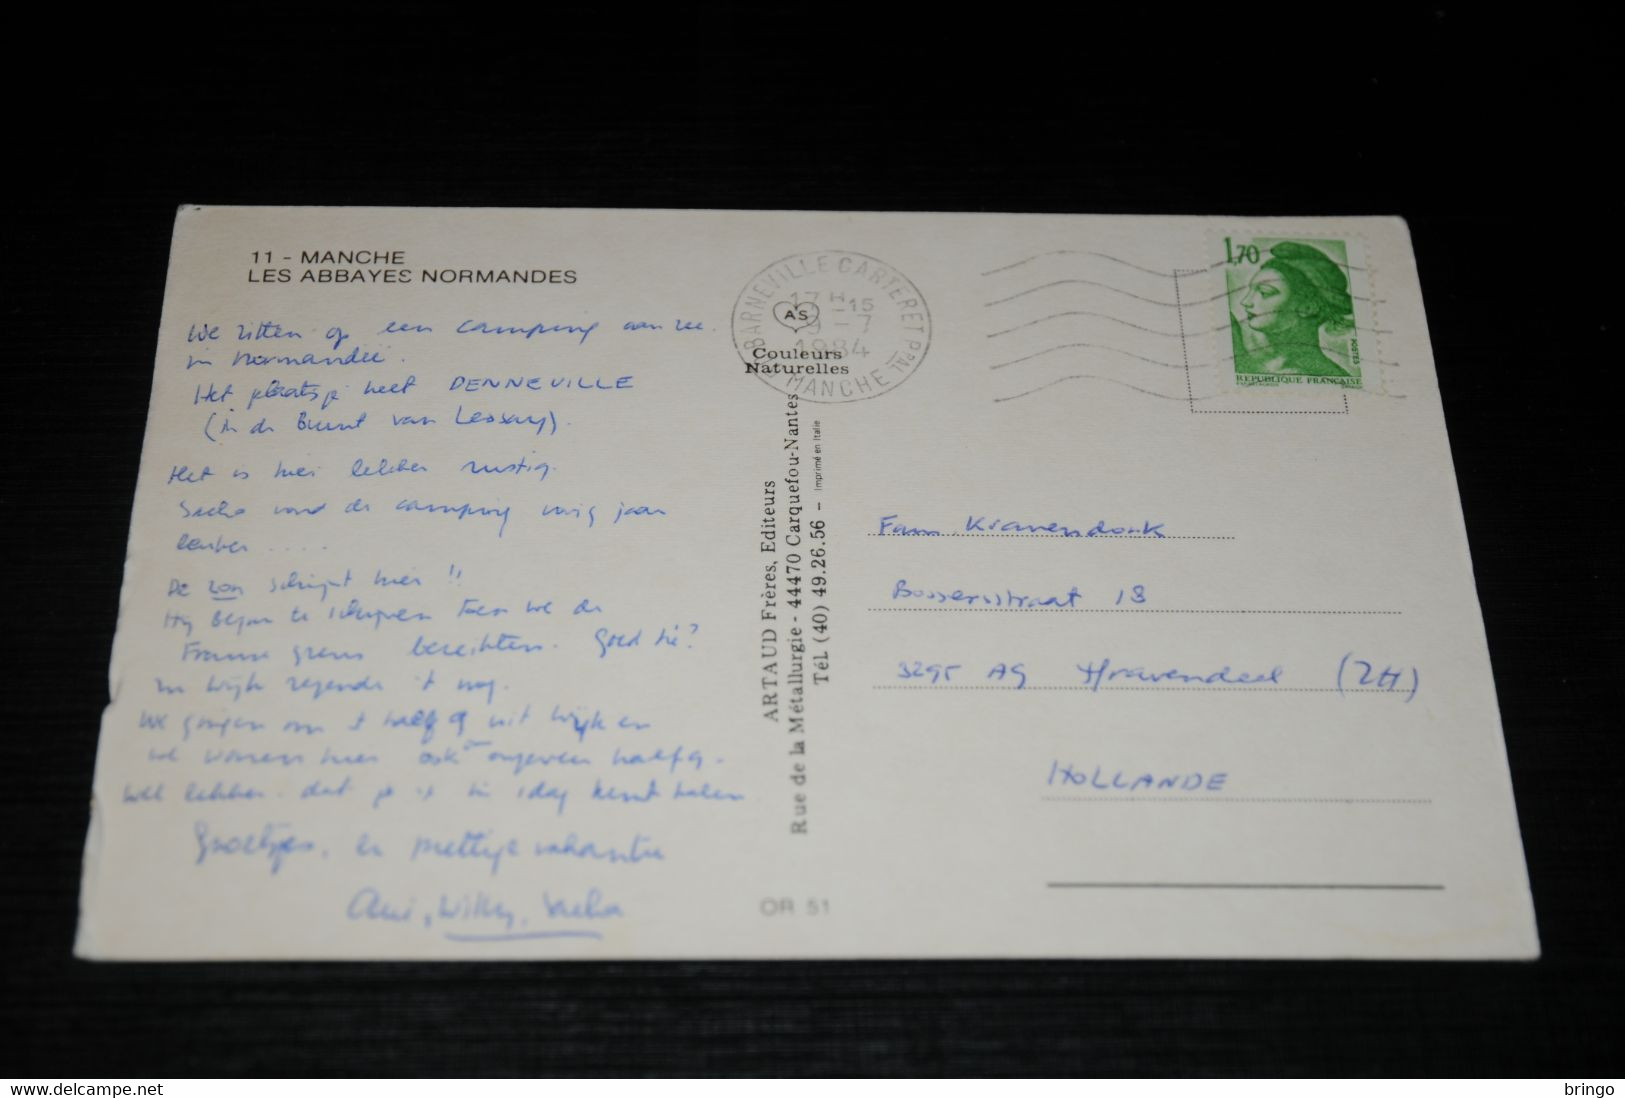 11 - MANCHE
LES ABBAYES NORMANDES
We zitten op een camping aan zee.
in Normandië.
Het plaatsje heet DENNEVILLE
(in de Buurt van Lessay).
Het is hier lekker rustig.
Sacha vond de camping vorig jaar
leuker .....
De zon schijnt hier !!
Hij begon te schijnen toen we de
Franse grens bereikten. Goed hè?
In Wijk regende 't nog.
We gingen om half 9 uit Wijk en
we waren hier ook ongeveer half 9.
Wel lekker dat je 't in 1 dag kunt halen
Groetjes, en prettige vakantie
Willy, Sacha
BARNEVILLE CARTERET PPAL
17 H 15
9 - 7
1984
MANCHE
AS
Couleurs
Naturelles
ARTAUD Frères, Editeurs
Rue de la Métallurgie - 44470 Carquefou-Nantes
Tél (40) 49.26.56 - Imprimé en Italie
OR 51
1,70
POSTES
REPUBLIQUE FRANÇAISE
Fam. Kranendonk
Bossersstraat 18
3295 AG 's-Gravendeel (ZH)
HOLLANDE
bringo